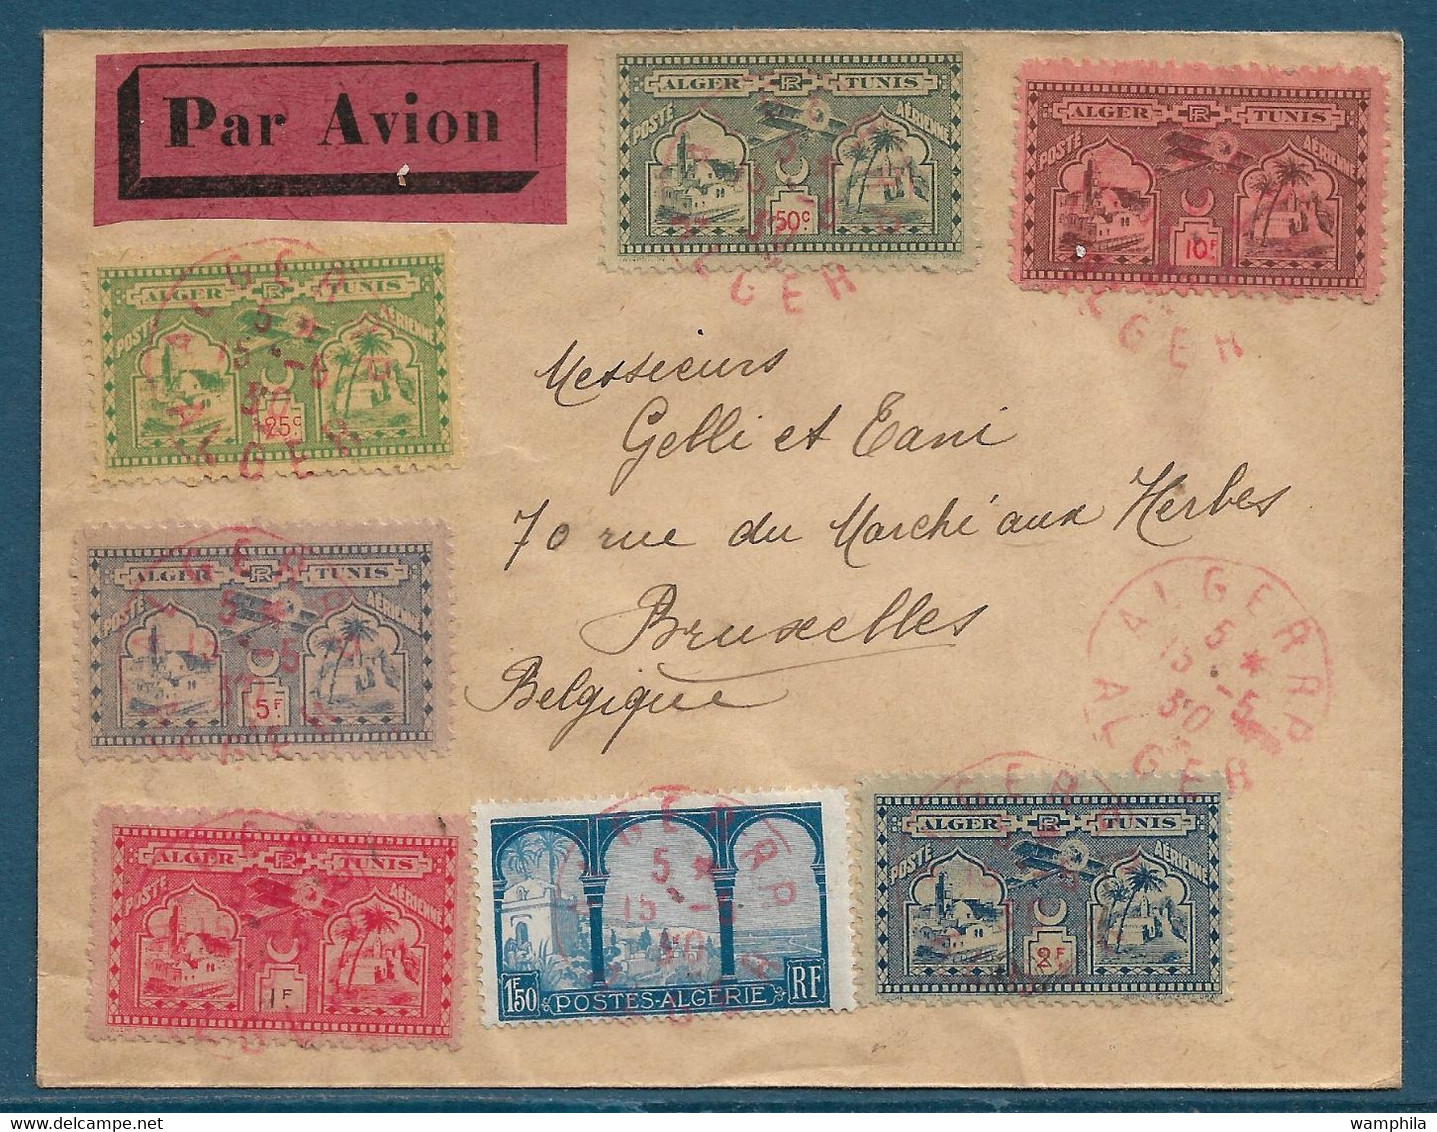 Par Avion
ALGER RF TUNIS
POSTE AÉRIENNE
50c
ALGER RF TUNIS
POSTE AÉRIENNE
10F
ALGER RF TUNIS
POSTE AÉRIENNE
25c
Messieurs
Gelli et Tani
70 rue du Marché aux Herbes
Bruxelles
Belgique
ALGER RF TUNIS
POSTE AÉRIENNE
5F
ALGER R.P.
5 *
15 -5
30
ALGER
ALGER RF TUNIS
POSTE AÉRIENNE
1F
1F50 POSTES-ALGERIE RF
ALGER RF TUNIS
POSTE AÉRIENNE
2F
wamphila